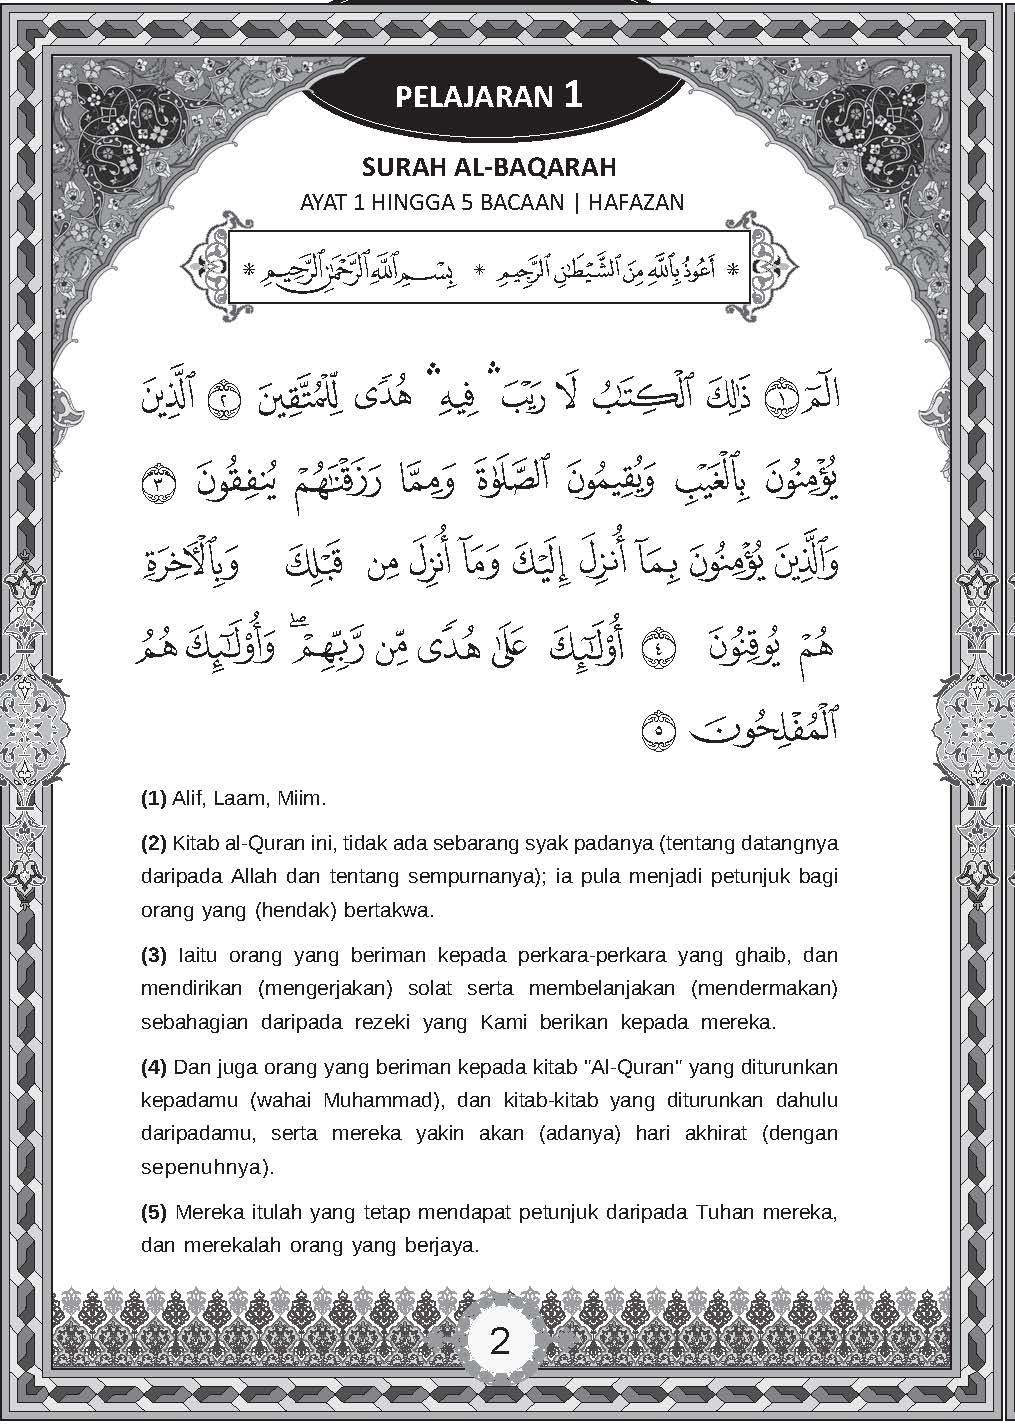 PELAJARAN 1
SURAH AL-BAQARAH
AYAT 1 HINGGA 5 BACAAN | HAFAZAN
* أَعُوذُ بِاللَّهِ مِنَ الشَّيْطَانِ الرَّجِيمِ * بِسْمِ اللَّهِ الرَّحْمَٰنِ الرَّحِيمِ *
الٓمٓ ١ ذَٰلِكَ ٱلْكِتَٰبُ لَا رَيْبَ ۛ فِيهِ ۛ هُدًى لِّلْمُتَّقِينَ ٢ ٱلَّذِينَ
يُؤْمِنُونَ بِٱلْغَيْبِ وَيُقِيمُونَ ٱلصَّلَوٰةَ وَمِمَّا رَزَقْنَٰهُمْ يُنفِقُونَ ٣
وَٱلَّذِينَ يُؤْمِنُونَ بِمَآ أُنزِلَ إِلَيْكَ وَمَآ أُنزِلَ مِن قَبْلِكَ وَبِٱلْأَخِرَةِ
هُمْ يُوقِنُونَ ٤ أُو۟لَٰٓئِكَ عَلَىٰ هُدًى مِّن رَّبِّهِمْ ۖ وَأُو۟لَٰٓئِكَ هُمُ
ٱلْمُفْلِحُونَ ٥
(1) Alif, Laam, Miim.
(2) Kitab al-Quran ini, tidak ada sebarang syak padanya (tentang datangnya
daripada Allah dan tentang sempurnanya); ia pula menjadi petunjuk bagi
orang yang (hendak) bertakwa.
(3) Iaitu orang yang beriman kepada perkara-perkara yang ghaib, dan
mendirikan (mengerjakan) solat serta membelanjakan (mendermakan)
sebahagian daripada rezeki yang Kami berikan kepada mereka.
(4) Dan juga orang yang beriman kepada kitab "Al-Quran" yang diturunkan
kepadamu (wahai Muhammad), dan kitab-kitab yang diturunkan dahulu
daripadamu, serta mereka yakin akan (adanya) hari akhirat (dengan
sepenuhnya).
(5) Mereka itulah yang tetap mendapat petunjuk daripada Tuhan mereka,
dan merekalah orang yang berjaya.
2